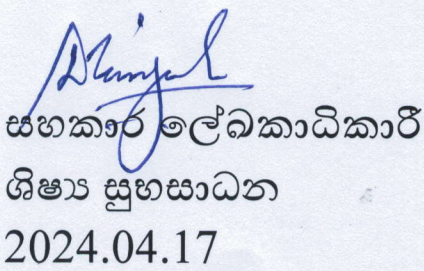 සහකාර ලේඛකාධිකාරී
ශිෂ්‍ය සුභසාධන
2024.04.17